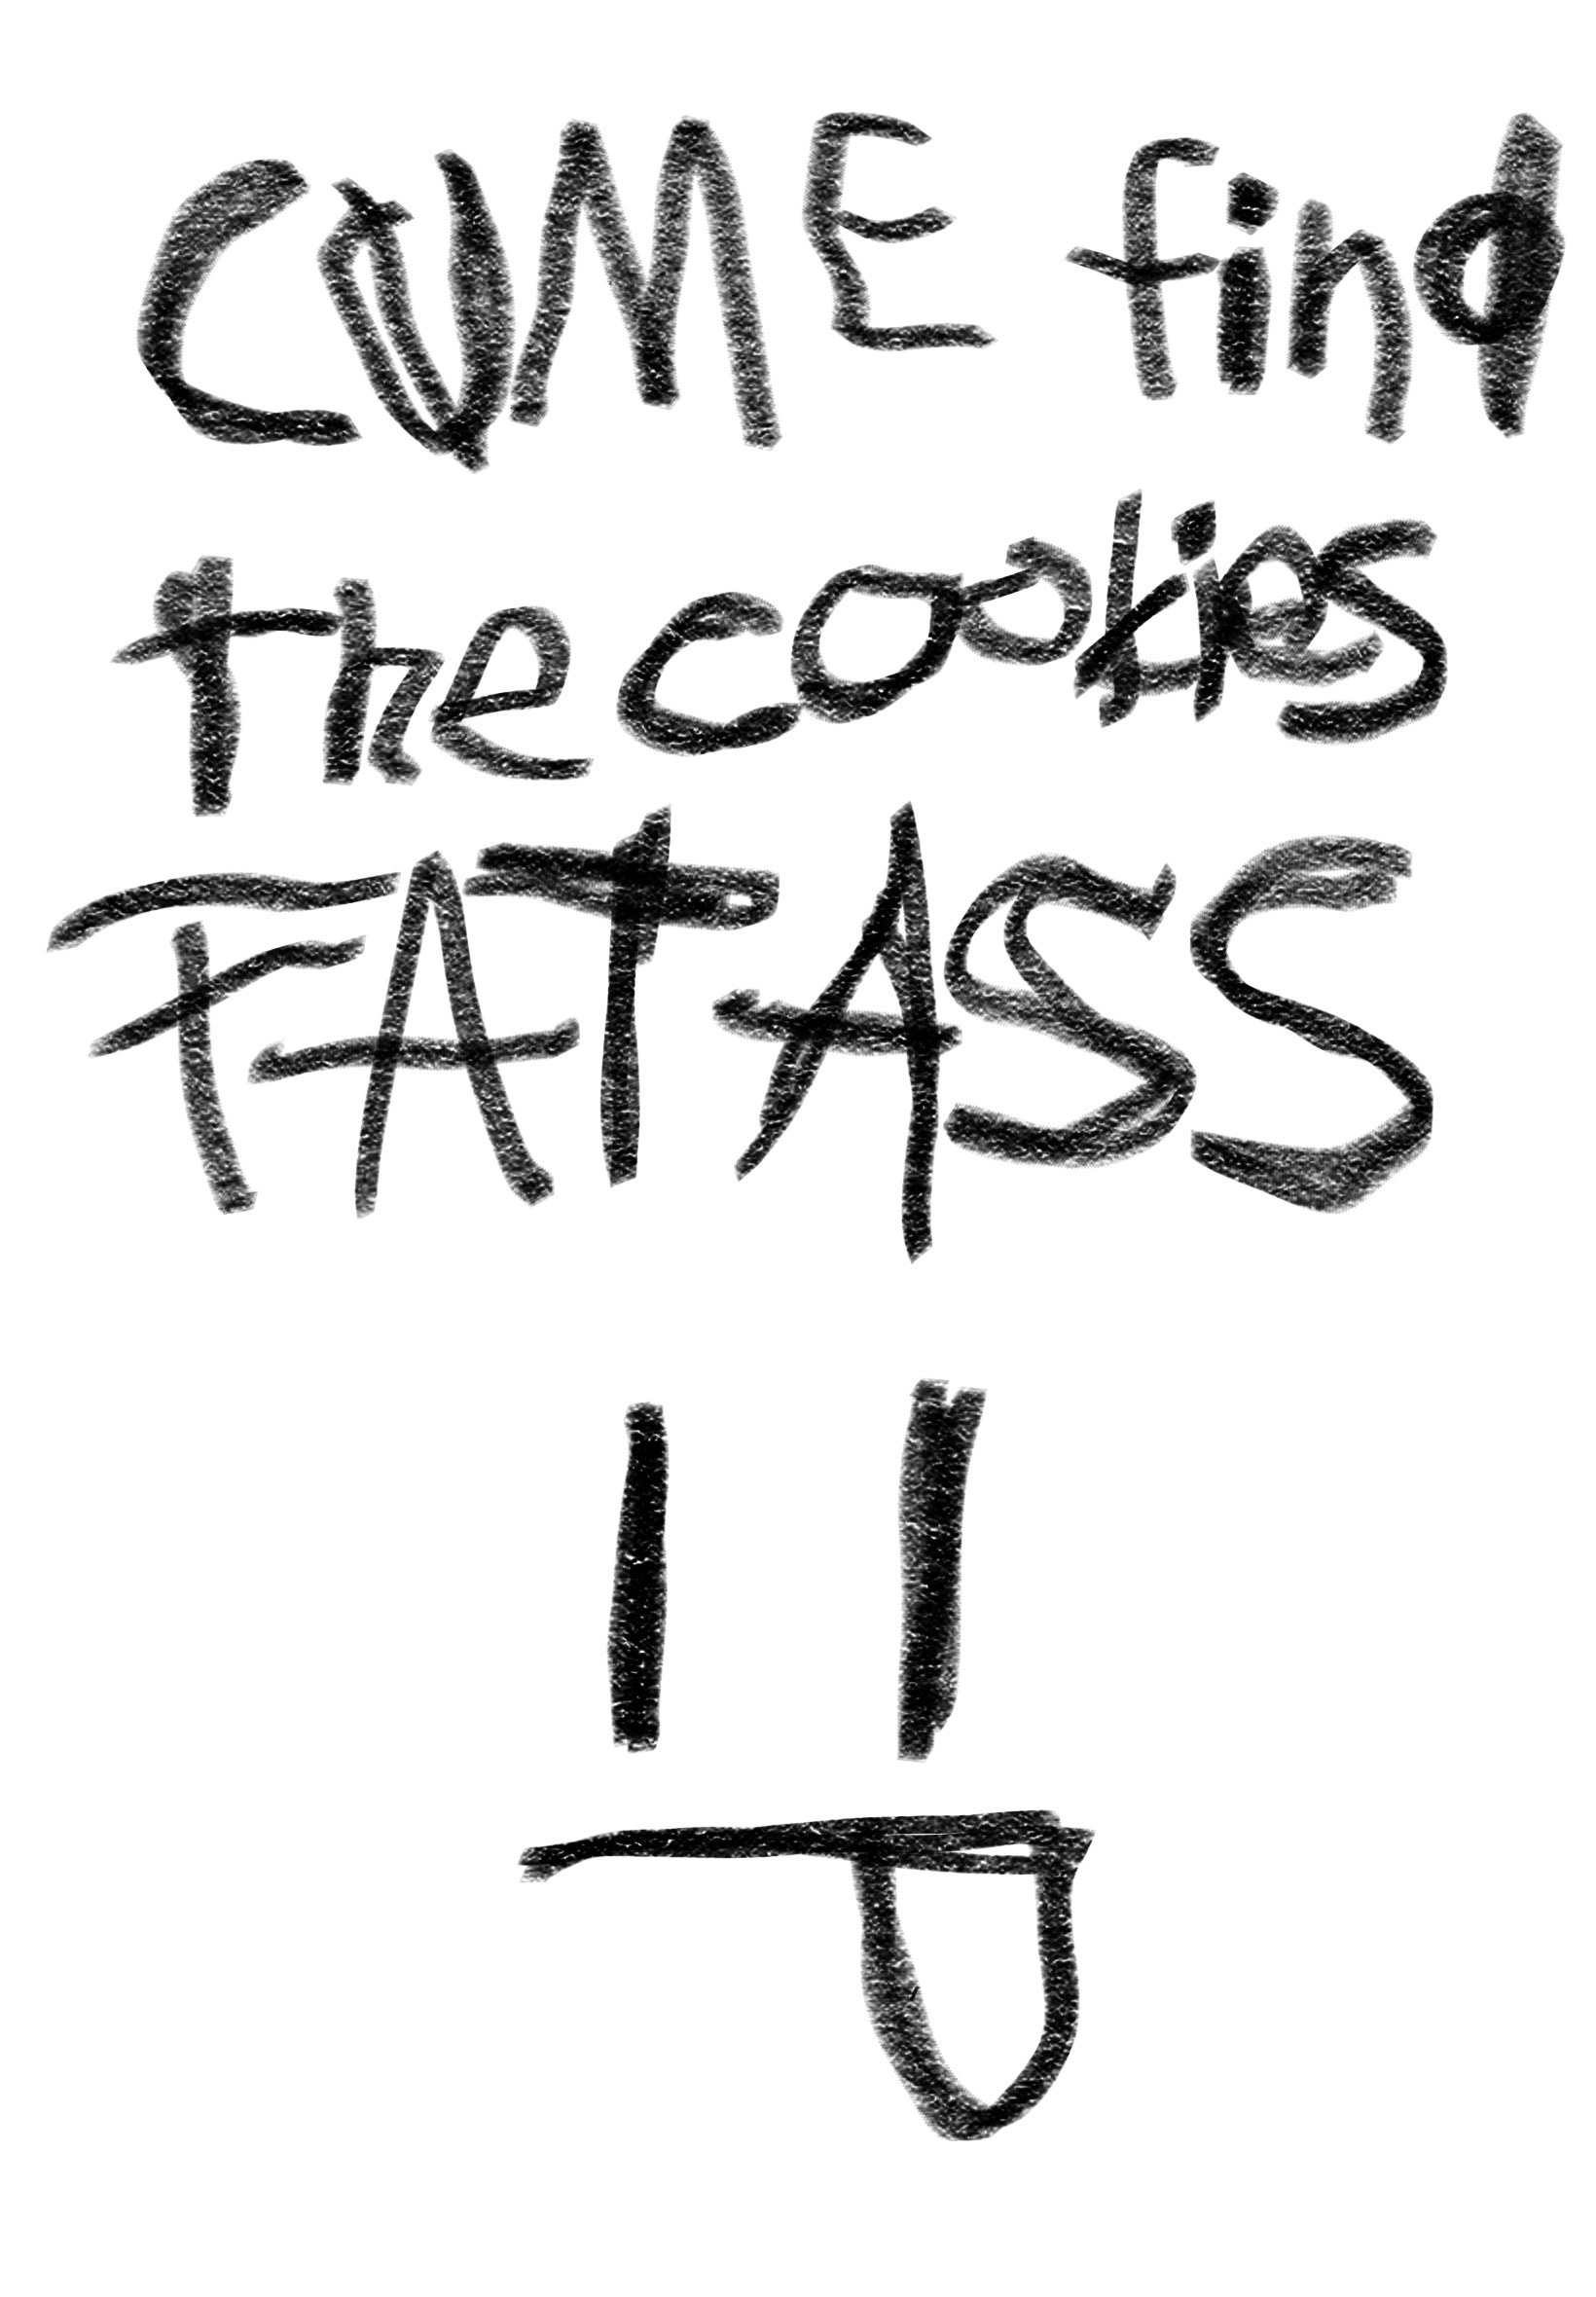 COME find
the cookies
FAT ASS